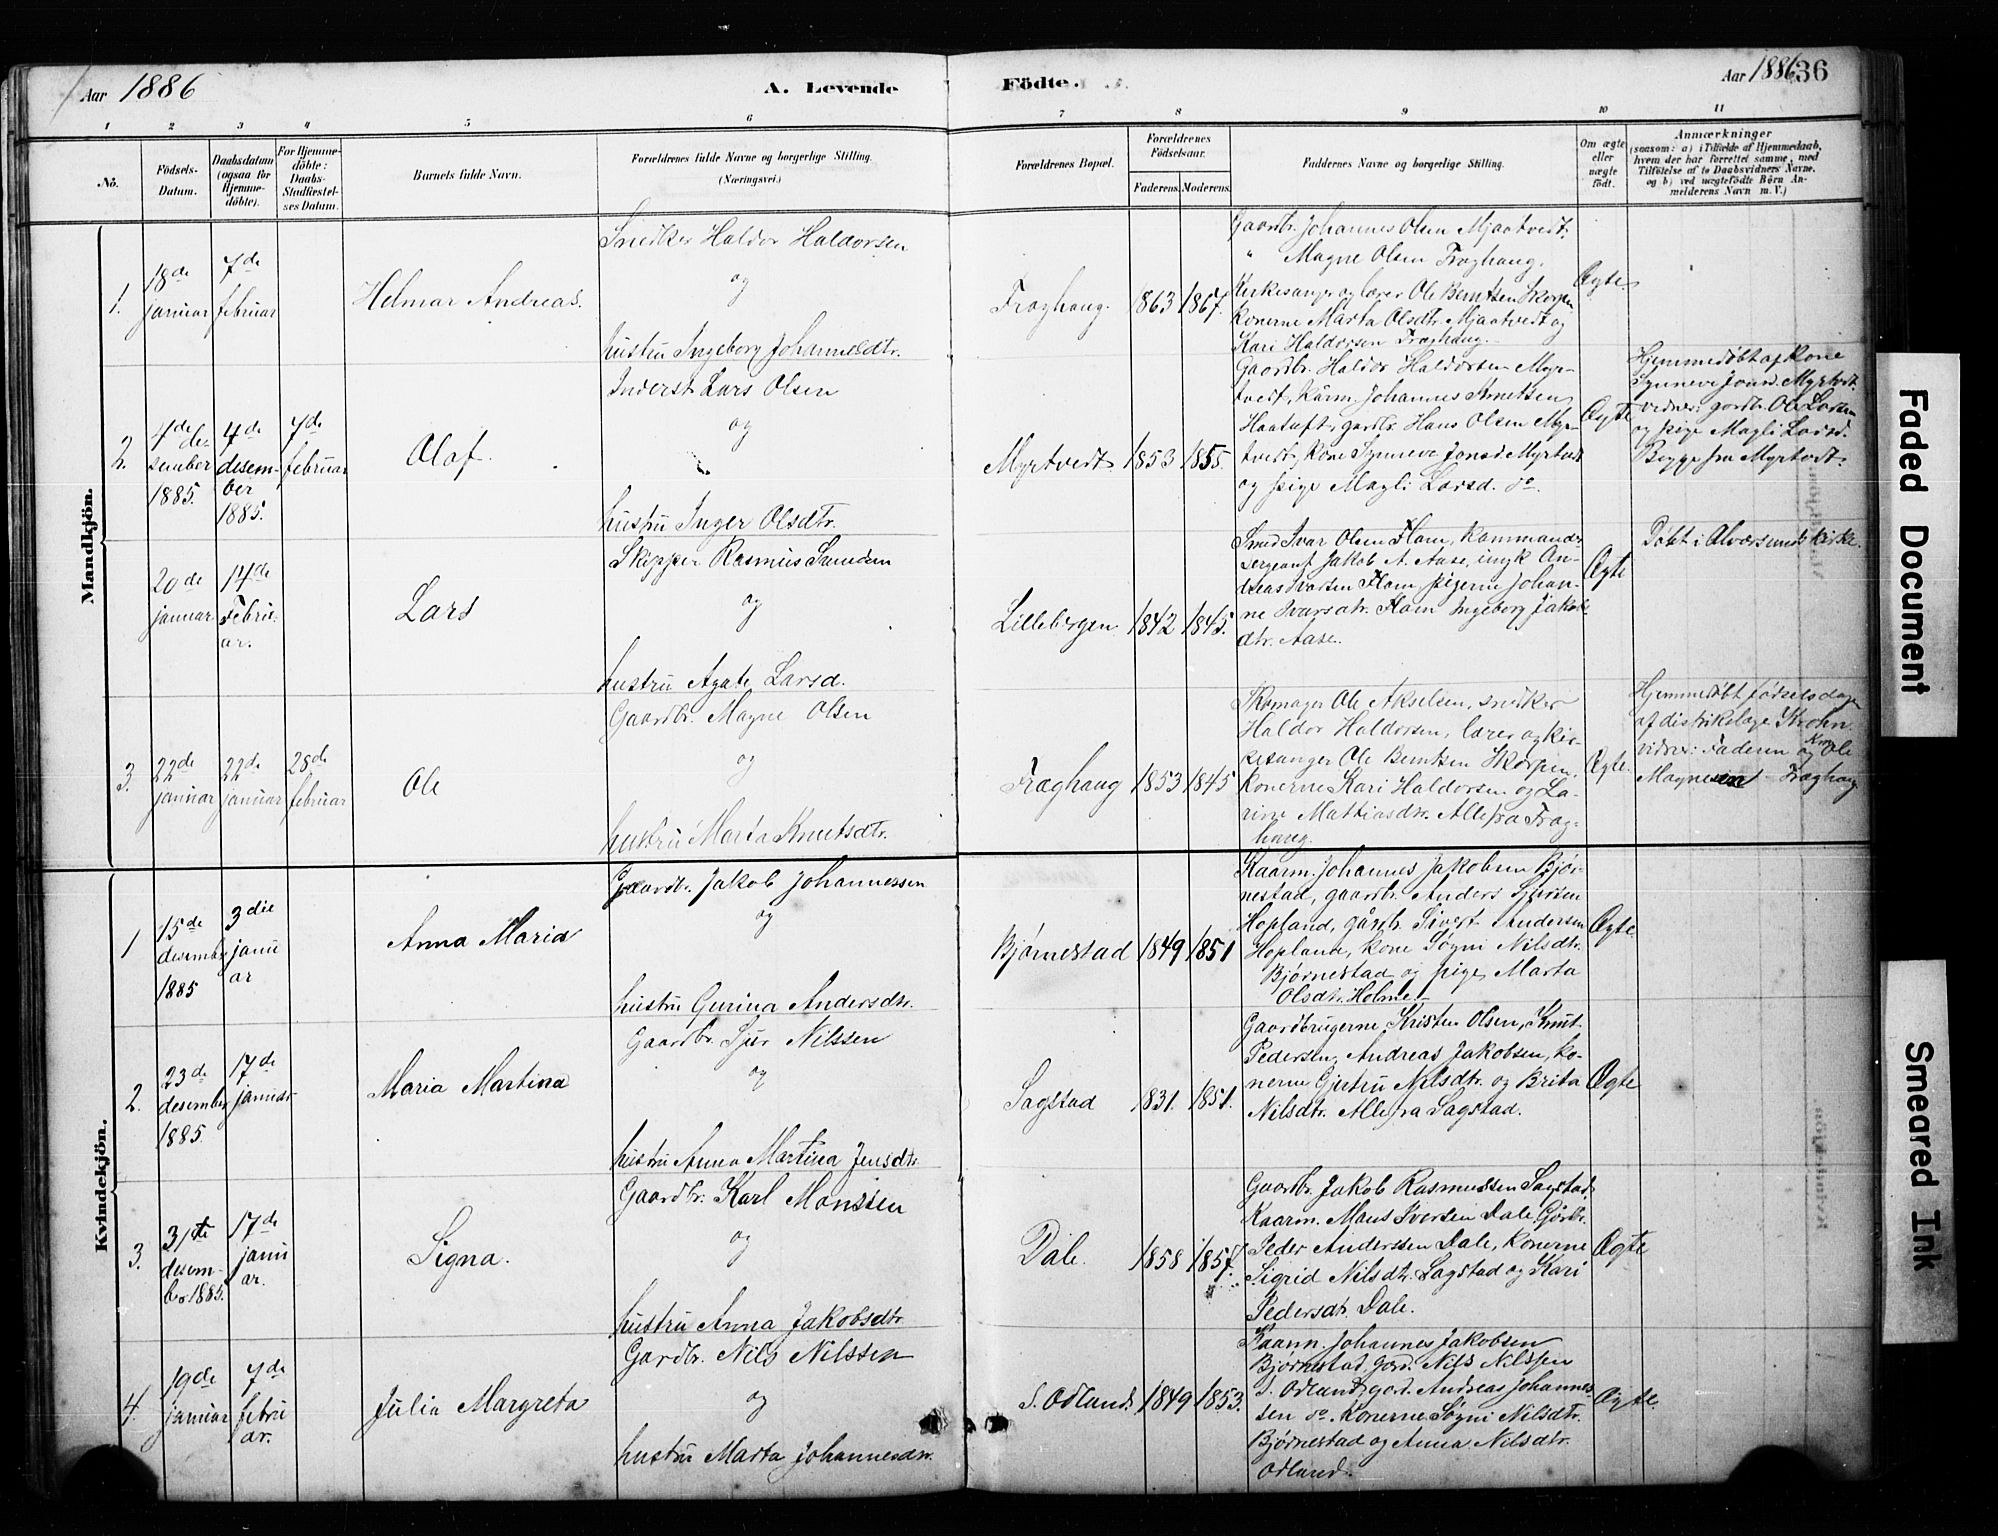 Aar 1886
A. Levende
Fødte.
Aar 1886
36
1 2 3 4 5 6 7 8 9 10 11
No.
Födsels-
Datum.
Daabsdatum
(ogsaa for
Hjemme-
döbte).
For Hjemme-
döbte:
Daabs-
Stadfæstel-
ses Datum.
Barnets fulde Navn.
Forældrenes fulde Navne og borgerlige Stilling.
(Næringsvei.)
Forældrenes Bopæl.
Forældrenes
Födselsaar.
Faderens. Moderens.
Faddernes Navne og borgerlige Stilling.
Om ægte
eller
uægte
födt.
Anmærkninger
(saasom: a) i Tilfælde af Hjemmedaab,
hvem der har forrettet samme, med
Tilföielse af to Daabsvidners Navne,
og b) ved uægtefödte Börn An-
melderens Navn m. V.)
Mandkjön.
1.
18de
januar
7de
februar
Helmar Andreas.
Snedker Haldor Haldorsen
og
hustru Ingeborg Johannesdtr.
Fraghaug.
1863
1867.
Gaardbr. Johannes Olsen Mjaatvedt.
" Magne Olsen Fraghaug.
Kirkesanger og lærer Ole Berntsen Skarpen
konerne Marta Olsdtr. Mjaatvedt og
Kari Haldorsen Fraghaug.
Ægte.
2.
4de de-
sember
1885.
4de
desem-
ber
1885.
7de
februar
Olaf.
Inderst Lars Olsen
og
hustru Inger Olsdtr.
Myrtvedt
1853
1855.
Gaardbr. Haldor Haldorsen Myr-
tvedt, Kårm. Johannes
gardbr. Hans Olsen Myr-
tvedt, kone Synneve Jonsd. Myrtvedt
og pige Magli Larsd. do.
Ægte
Hjemmedøbt af kone
Synneve Jonsd. Myrtvedt.
vidner: gardbr. Ole Larsen
og pige Magli Larsd.
Begge fra Myrtvedt.
20de
januar
14de
Februar
ar.
Lars
Skipper Rasmus
og
hustru Agate Larsd.
Lillebergen
1842
1845.
Smed Ivar Olsen Flam, Kommander
sergeant Jakob A. Aase, ungk. An-
dreas Ivarsen Flam pigerne Johan-
ne Ivarsdtr. Flam Ingeborg Jakobs-
dtr. Aase.
Ægte
Døbt i Alværsunds kirke.
3.
22de
januar
22de
januar
28de
februar
Ole
Gaardbr. Magne Olsen
og
hustru Marta Knutsdtr.
Fraghaug
1853
1845
Skomager Ole Akselsen, snedker
Haldor Haldorsen, lærer og kir-
kesanger Ole Berntsen Skarpen,
konerne Kari Haldorsen og La-
rine Mattiasdtr. Alle fra Frag-
haug.
Ægte.
Hjemmedøbt fødselsdagen
af distriktslæge Krohn.
vidner: Faderen og Ole
Magnesen Fraghaug
Kvindekjön.
1
15de
desember
1885
3die
janu
ar
Anna Maria
Gaardbr. Jakob Johannessen
og
hustru Gurina Andersdtr.
Bjørnestad
1849
1851
Kaarm. Johannes Jakobsen Bjør-
nestad, gaardbr. Anders Sjursen
Hopland, gårdb. Sivert Andersen
Hopland, kone Søgni Nilsdtr.
Bjørnestad og pige Marta
Olsdtr. Holme.
Ægte.
2.
23de
desember
1885.
17de
januar
Maria Martina
Gaardbr. Sjur Nilssen
og
hustru Anna Martina Jensdtr.
Sagstad
1831.
1851.
Gaardbrugerne Kristen Olsen, Knut
Pedersen, Andreas Jakobsen, ko-
nerne Gjertru Nilsdtr. og Brita
Nilsdtr. Alle fra Sagstad.
Ægte
3.
31te
desem-
br. 1885.
17de
janu
ar.
Signa.
Gaardbr. Karl Monssen
og
hustru Anna Jakobsdtr.
Dale.
1858
1857.
Gaardbr. Jakob Rasmussen Sagstad,
Kaarm. Mons Iversen Dale, Gårbr.
Peder Anderssen Dale, konerne
Sigrid Nilsdtr. Sagstad og Kari
Pedersdtr. Dale.
Ægte
4.
19de
januar
7de
febru
ar.
Julia Margreta
Gardbr. Nils Nilssen
og
hustru Marta Johannesdtr.
S. Odland.
1849
1853.
Kaarm. Johannes Jakobsen
Bjørnestad, gard. Nils Nilssen
S. Odland, gard. Andreas Johannes-
sen do. konerne Søgni Nilsdtr.
Bjørnestad og Anna Nilsdtr.
Odland.
Ægte.
Faded Document
Smeared Ink